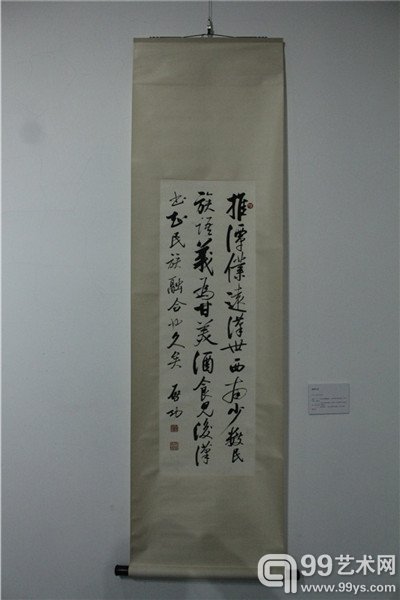 推潭僕遠漢世西南少數民
族語義為甘美酒食見後漢
書知民族融合久矣 啟功
99艺术网
www.99ys.com